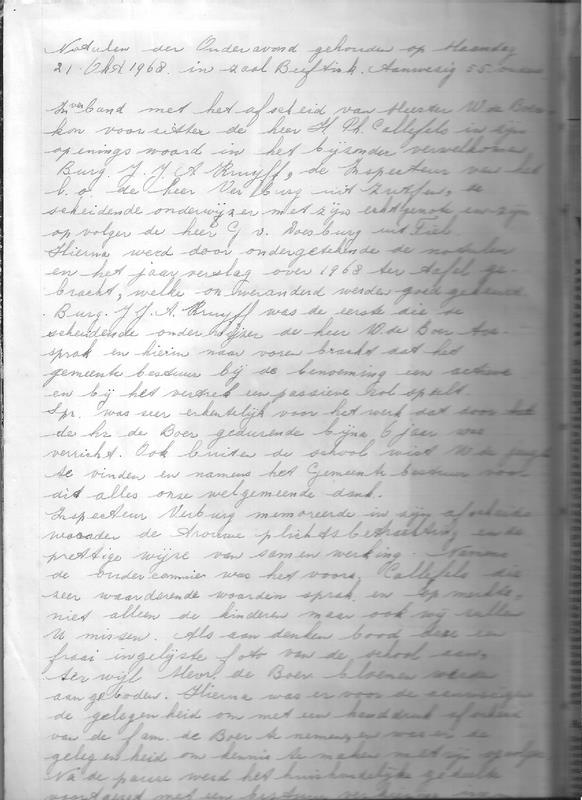 Notulen der Ouderavond gehouden op Maandag
21 Okt 1968. in zaal Beeftink. Aanwezig 55 ouders
In verband met het afscheid van Meester W de Boer
kon voorzitter de heer H. Ph. Callefels in zijn
openings woord in het bijzonder verwelkomen
Burg. J. J. A Kruyff, de Inspecteur van het
l. o. de heer Verburg uit Zutfen, de
scheidende onderwijzer met zijn echtgenote en zijn
opvolger de heer G v. Doesburg uit Tiel.
Hierna werd door ondergetekende de notulen
en het jaarverslag over 1968 ter tafel ge-
bracht, welke onveranderd werden goedgekeurd.
Burg. J. J. A. Kruyff was de eerste die de
scheidende onderwijzer de heer W. de Boer toe-
sprak en hierin naar voren bracht dat het
gemeente bestuur bij de benoeming een actieve
en bij het vertrek een passieve rol speelt.
Spr. was zeer erkentelijk voor het werk dat door
de hr. de Boer gedurende bijna 6 jaar was
verricht. Ook buiten de school wist W. de
te vinden en namens het Gemeente bestuur voor
dit alles onze welgemeende dank.
Inspecteur Verburg memoreerde in zijn afscheids
woorden de trouwe plichtsbetrachting en de
prettige wijze van samenwerking. Namens
de oudercommie was het voorz. Callefels die
zeer waarderende woorden sprak en opmerkte,
niet alleen de kinderen maar ook wij zullen
U missen. Als aandenken bood deze een
fraai ingelijste foto van de school aan,
terwijl Mevr. de Boer bloemen werden
aangeboden. Hierna was er voor de aanwezigen
de gelegenheid om met een handdruk afscheid
van de fam. de Boer te nemen, en was er de
gelegenheid om kennis te maken met zijn opvolger
Na de pauze werd het huishoudelijke gedeelte
voortgezet met een bestuurs verkiezing